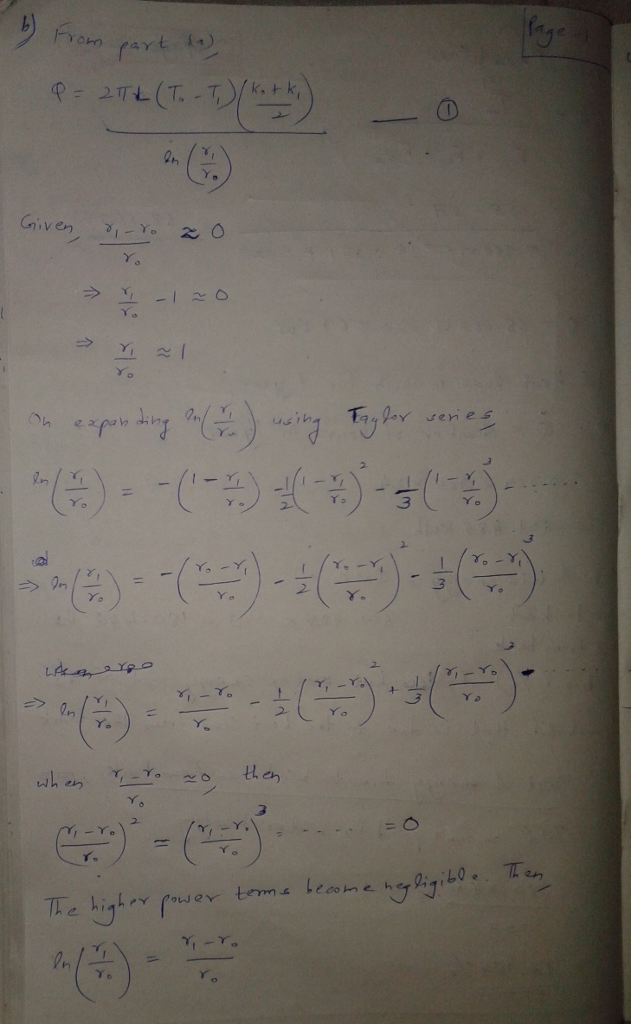 b) From part (a), Page-1
Q = 2πL (T₀ - T₁) ((k₀ + k₁)/2) / ln (r₁/r₀) — ①
Given, (r₁ - r₀)/r₀ ≈ 0
⇒ r₁/r₀ - 1 ≈ 0
⇒ r₁/r₀ ≈ 1
On expanding ln (r₁/r₀) using Taylor series,
ln (r₁/r₀) = -(1 - r₁/r₀) - 1/2 (1 - r₁/r₀)² - 1/3 (1 - r₁/r₀)³ - ......
⇒ ln (r₁/r₀) = -((r₀ - r₁)/r₀) - 1/2 ((r₀ - r₁)/r₀)² - 1/3 ((r₀ - r₁)/r₀)³
⇒ ln (r₁/r₀) = (r₁ - r₀)/r₀ - 1/2 ((r₁ - r₀)/r₀)² + 1/3 ((r₁ - r₀)/r₀)³ - ......
when (r₁ - r₀)/r₀ ≈ 0, then
((r₁ - r₀)/r₀)² = ((r₁ - r₀)/r₀)³ = ...... = 0
The higher power terms become negligible. Then,
ln (r₁/r₀) = (r₁ - r₀)/r₀